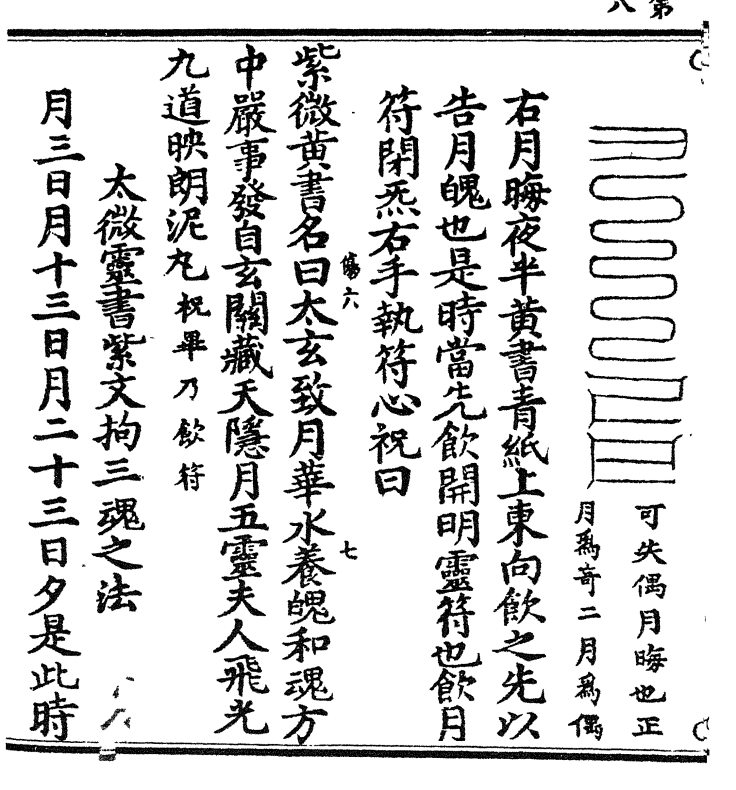 第
八
可失偶月晦也正
月爲奇二月爲偶
右月晦夜半黄書青紙上東向飲之先以
告月魄也是時當先飲開明靈符也飲月
符閉炁右手執符心祝曰
傷六
七
紫微黄書名曰太玄致月華水養魄和魂方
中嚴事發自玄關藏天隱月五靈夫人飛光
九道映朗泥丸祝畢乃飲符
太微靈書紫文拘三魂之法
月三日月十三日月二十三日夕是此時